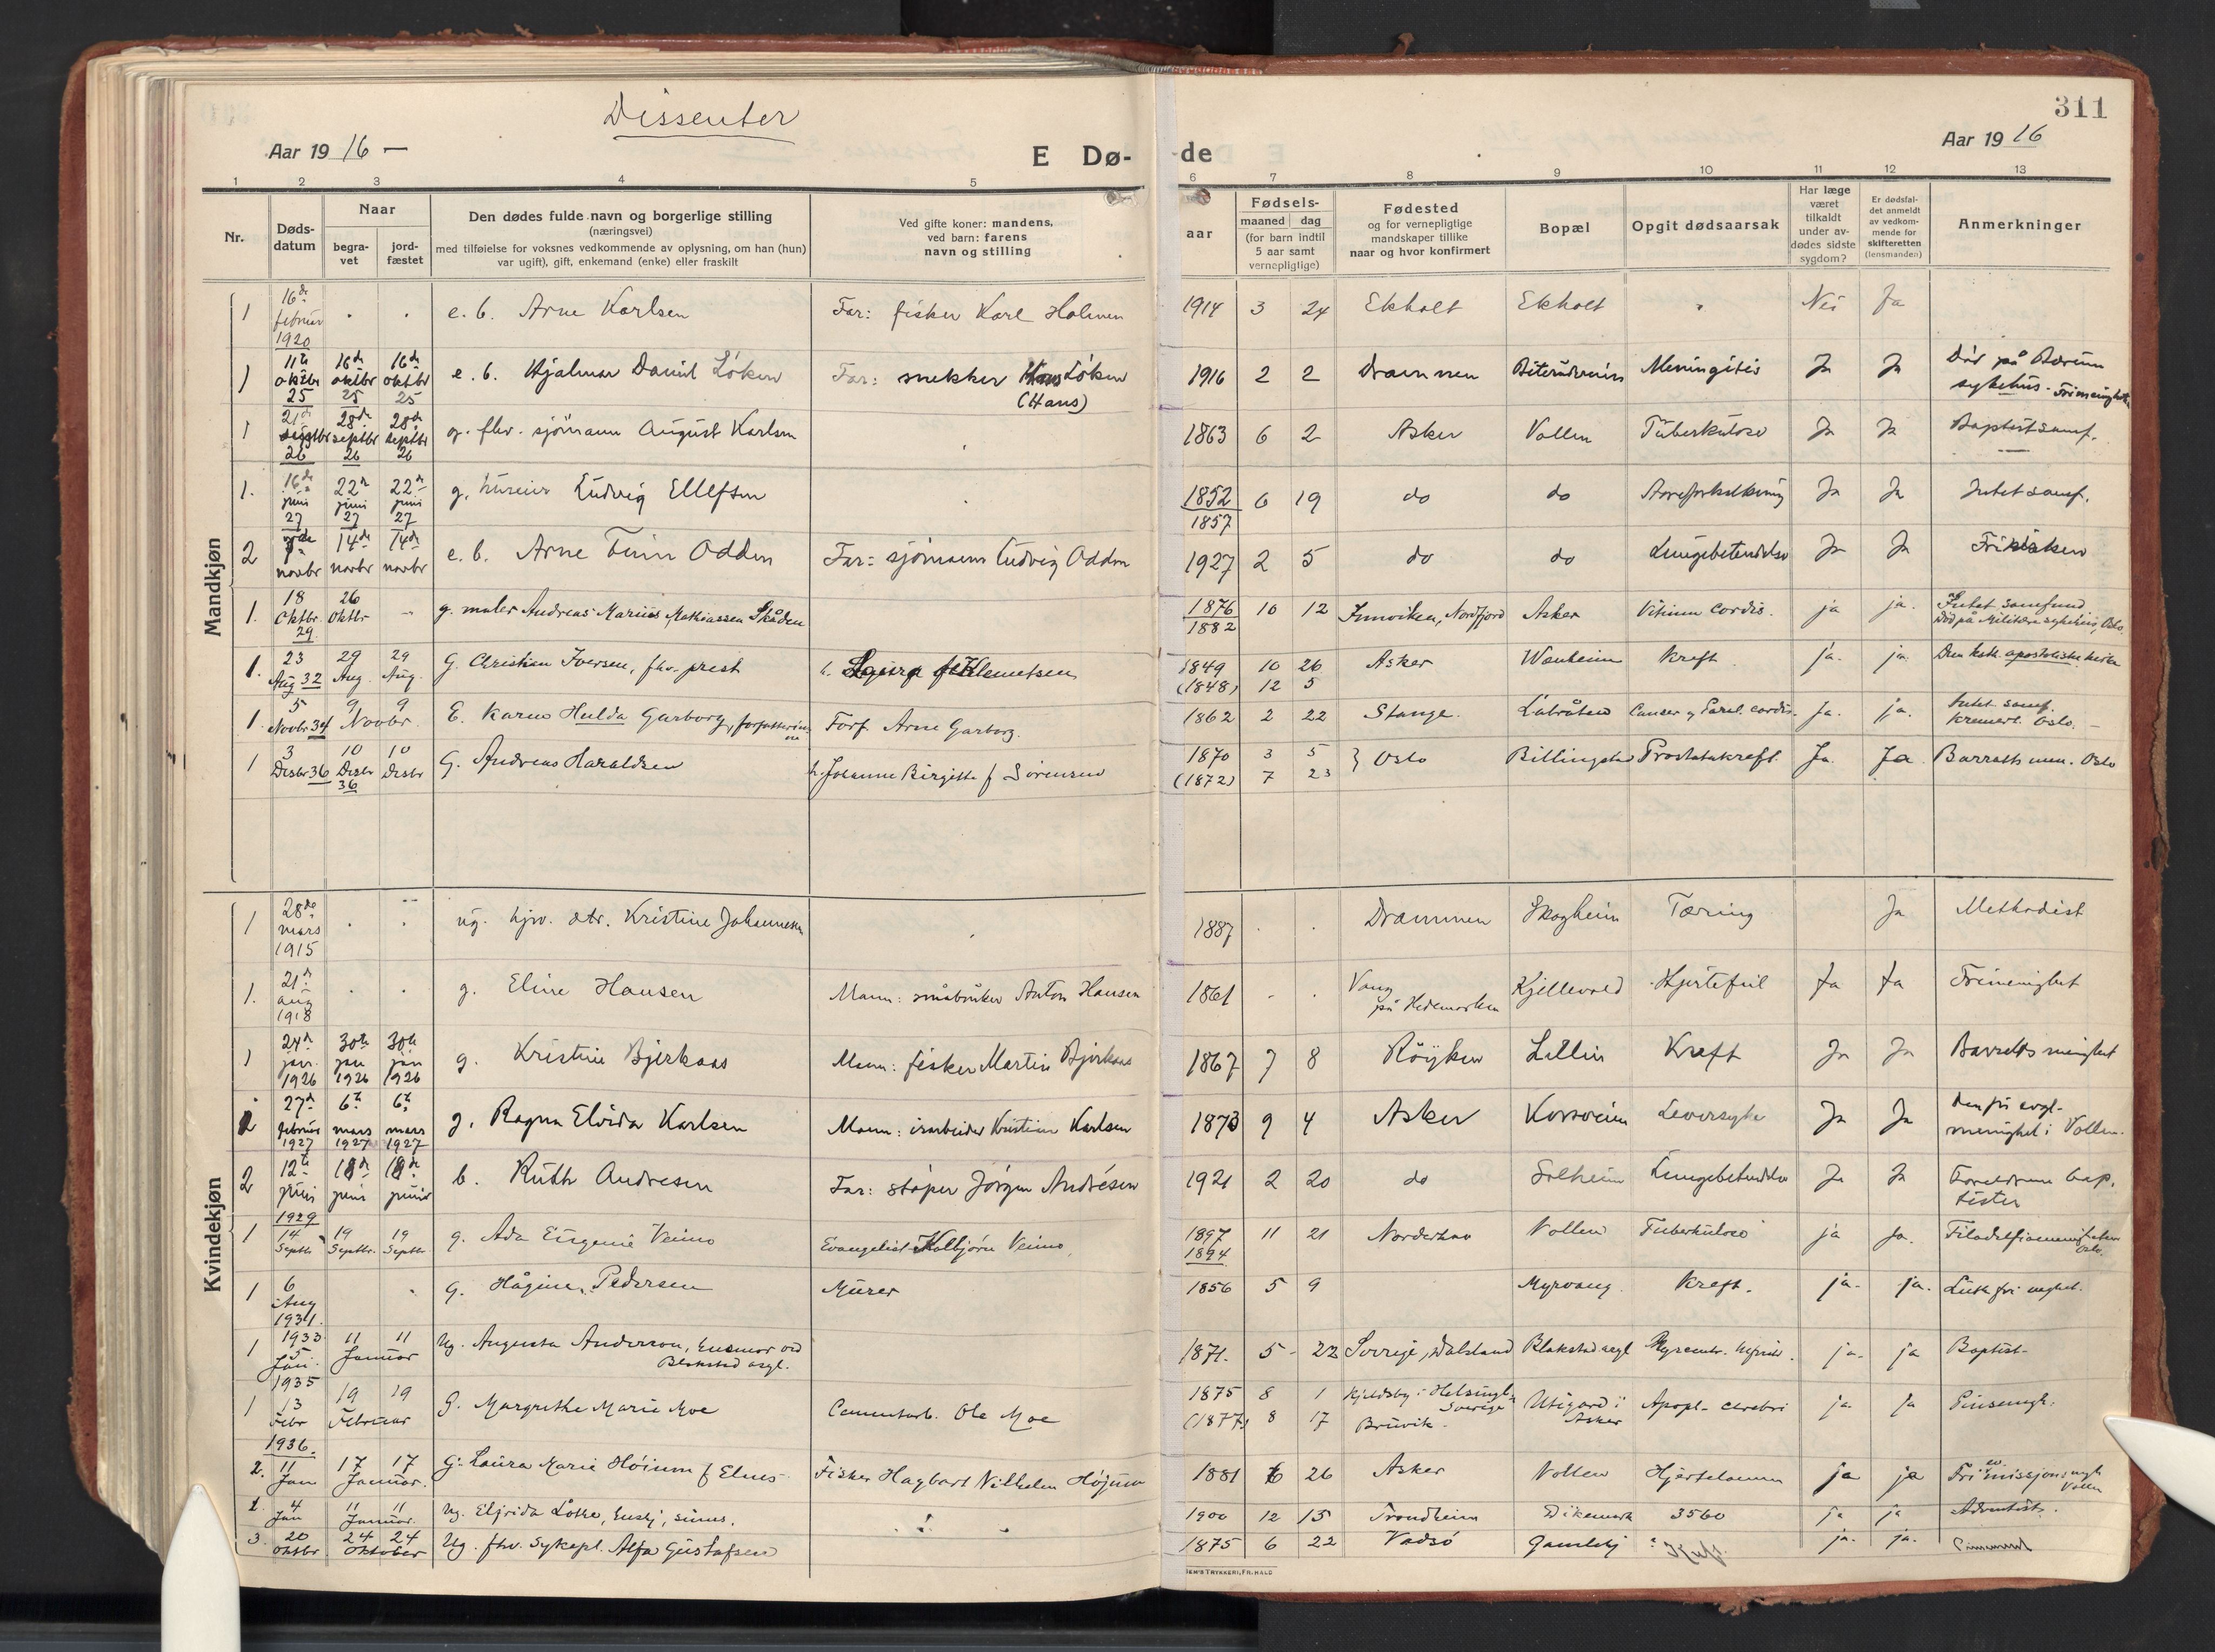 Dissenter
311
Aar 1916 —
E Dø-
-de
Aar 1916
1 2 3 4 5 6 7 8 9 10 11 12 13
Nr.
Døds-
datum
Naar
begra-
vet
jord-
fæstet
Den dødes fulde navn og borgerlige stilling
(næringsvei)
med tilføielse for voksnes vedkommende av oplysning, om han (hun)
var ugift), gift, enkemand (enke) eller fraskilt
Ved gifte koner: mandens,
ved barn: farens
navn og stilling
Fødsels-
aar
maaned dag
(for barn indtil
5 aar samt
vernepligtige)
Fødested
og for vernepligtige
mandskaper tillike
naar og hvor konfirmert
Bopæl
Opgit dødsaarsak
Har læge
været
tilkaldt
under av-
dødes sidste
sygdom?
Er dødsfal-
det anmeldt
av vedkom-
mende for
skifteretten
(lensmanden)
Anmerkninger
Mandkjøn
1 16de februar 1920 e. b. Arne Karlsen Far: fisker Karl Holmen 1914 3 24 Ekholt Ekholt Nei Ja
1 11te oktbr 25 16de oktbr 25 16de oktbr 25 e. b. Hjalmar Daniel Löken Far: snekker Hans Löken (Hans) 1916 2 2 Drammen Meningitis Ja Ja Död på Bærum sykehus. Frimenighet
1 21de septbr 26 28de septbr 26 28de septbr 26 g. fhv. sjömann August Karlsen 1863 6 2 Asker Vollen Tuberkulose Ja Ja Baptistsamf.
1. 16de juni 27 22de juni 27 22de juni 27 g. huseier Ludvig Ellefsen 1852 1857 6 19 do do Aareforkalkning Ja Ja Intet samf.
2 novbr 14de novbr 14de novbr e. b. Arne Finn Odden Far: sjömann Ludvig Odden 1927 2 5 do do Lungebetendelse Ja Ja Frikirken
1. 18 Oktbr. 29 26 Oktbr - g. maler Andreas Marius Mathiassen Skåden 1876 1882 10 12 Innviken, Nordfjord Asker Vitium cordis. ja ja. Intet samfund Död på Militære sykehus, Oslo.
1. 23 Aug 32 29 Aug. 29 Aug. G. Christian Iversen, fhv. prest h. f. Klemetsen 1849 (1848) 10 12 26 5 Asker Wenheim Kreft ja. ja. Den kath. apostoliske kirke
1. 5 Novbr 34 9 9 Novbr. E. Karen Hulda Garborg, forfatterinne Forf. Arne Garborg. 1862 2 22 Stange. Labråten Cancer og Paral. cordis. Ja. ja. Intet samf. kremert. Oslo. -
1 3 Desbr 36 10 Desbr 36 10 Desbr G. Andreas Haraldsen h. Johanne Birgitte f Sørensen 1870 (1872) 3 7 5 23 } Oslo Billingstad Prostatakreft. Ja. Ja. Barratts men. Oslo
Kvindekjøn
1 28de mars 1915 ug. hjv. dtr. Kristine Johannesen 1887 Drammen Skogheim Tæring Ja Methodist
1. 21de aug 1918 g. Eline Hansen Mann: småbruker Anton Hansen 1861 Vang på Hedemarken Kjellevold Hjertefeil Ja Ja Frimenighet
1 24de jan. 1926 30te jan 1926 30te jan 1926 g. Kristine Bjerkaas Mann: fisker Martin Bjerkaas 1867 7 8 Röyken Lillin Kreft Ja Ja Barratts menighet
27de februar 1927 6te mars 1927 6te mars 1927 g. Ragna Elvida Karlsen Mann: isarbeider Kristian Karlsen 1873 9 4 Asker Leversyke Ja Ja Den fri evgl. menighet i Vollen.
2 12te juni 18de juni 18de juni b. Ruth Andresen Far: stöper Jörgen Andrésen 1921 2 20 do Solheim Lungebetendelse Ja Ja Foreldrene baptister
1 1929 14 Septbr 19 Septbr. 19 Septbr. g. Ada Eugenie Veimo Evangelist Kolbjörn Veimo, 1897 1894 11 21 Norderhov Vollen Tuberkulose ja Ja. Filadelfiamenigheten Oslo.
1 6 Aug 1931. g. Hågine Pedersen Murer 1856 5 9 Myrvang Kreft. ja. ja. Luth. fri meghet.
1 1933 5 Jan. 11 11 Januar Ug. Augusta Anderson, husmor ved Blakstad asyl. 1871. 5 - 22 Sverige, Dalsland Blakstad asyl ja. ja Baptist-
1 1935 13 Febr 19 19 Februar G. Margrethe Marie Moe Cementarb. Ole Moe 1875 (1877) 8 8 1 17 Sverige Bruvik - Utigard i Asker Apopl. cerebri ja. Ja Pinsemgh.
2. 1936. 11 Jan 17 17 Januar. G. Laura Marie Höium f Elnes Fisker Hagbart Vilhelm Höjum 1881 6 26 Asker Vollen Hjertelammelse ja ja Fri misjonsmgh Vollen
4 Jan 11 11 Januar. Ug. Elfrida Lötke, 1900 12 15 Trondheim Dikemark 3560 ja ja Adventist.
3. 20 oktbr 24 24 oktober Ug. fhv. Sykepl. Alfa Gustafsen 1875 6 22 Vadsö Gamlehj ja. ja.
SEM'S TRYKKERI, FR. HALD